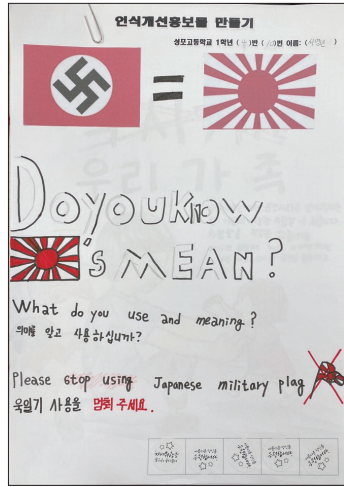 인식개선홍보물 만들기
성포고등학교 1학년 ( )반 ( )번 이름: ( )
=
DO YOU KNOW
's MEAN?
What do you use and meaning?
의미를 알고 사용하십니까?
Please stop using Japanese military plag
욱일기 사용을 멈춰 주세요.